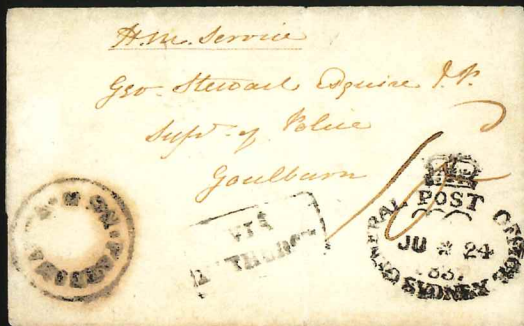 H.M. Service
Geo. Stewart Esquire J.P.
Supt. of Police
Goulburn
10
VIA
GENERAL POST OFFICE
JU 24
183
SYDNEY